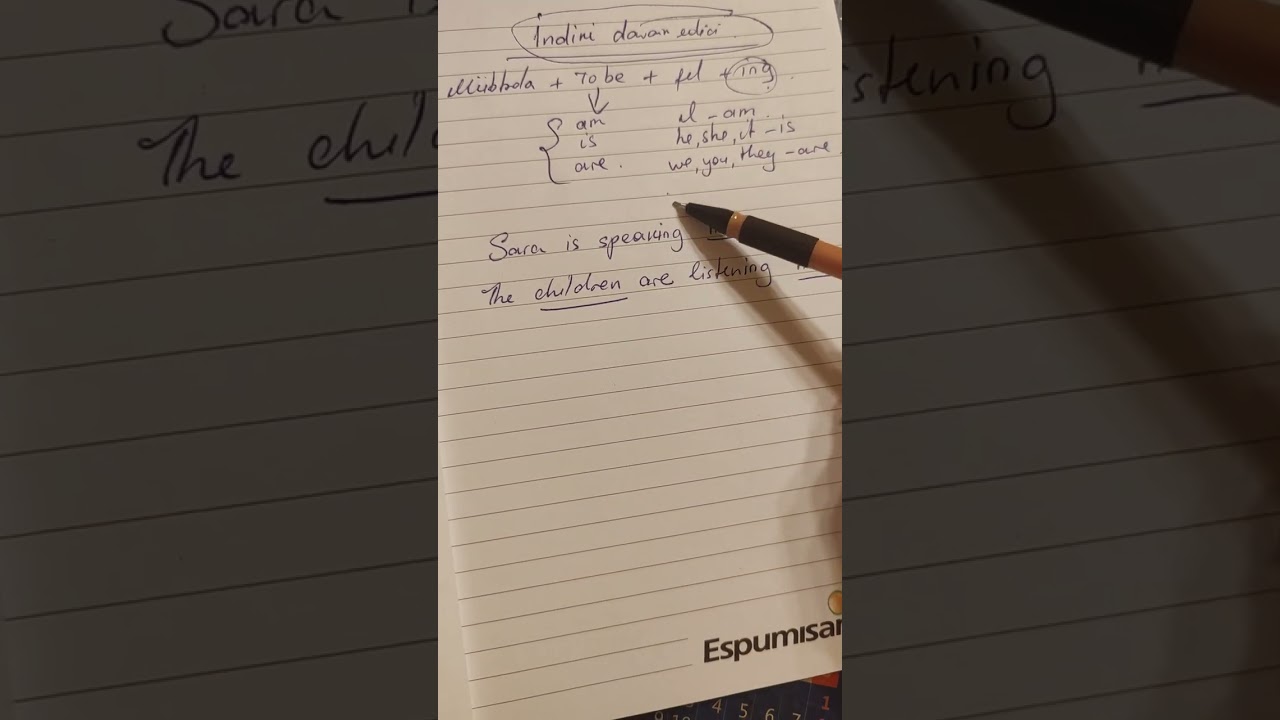 Indini davam edici
Mübtəda + To be + fel + ing.
am I - am.
is he, she, it - is
are. we, you, they - are.
Sara is speaking
The children are listening
Espumisan
4 5 6 7 1